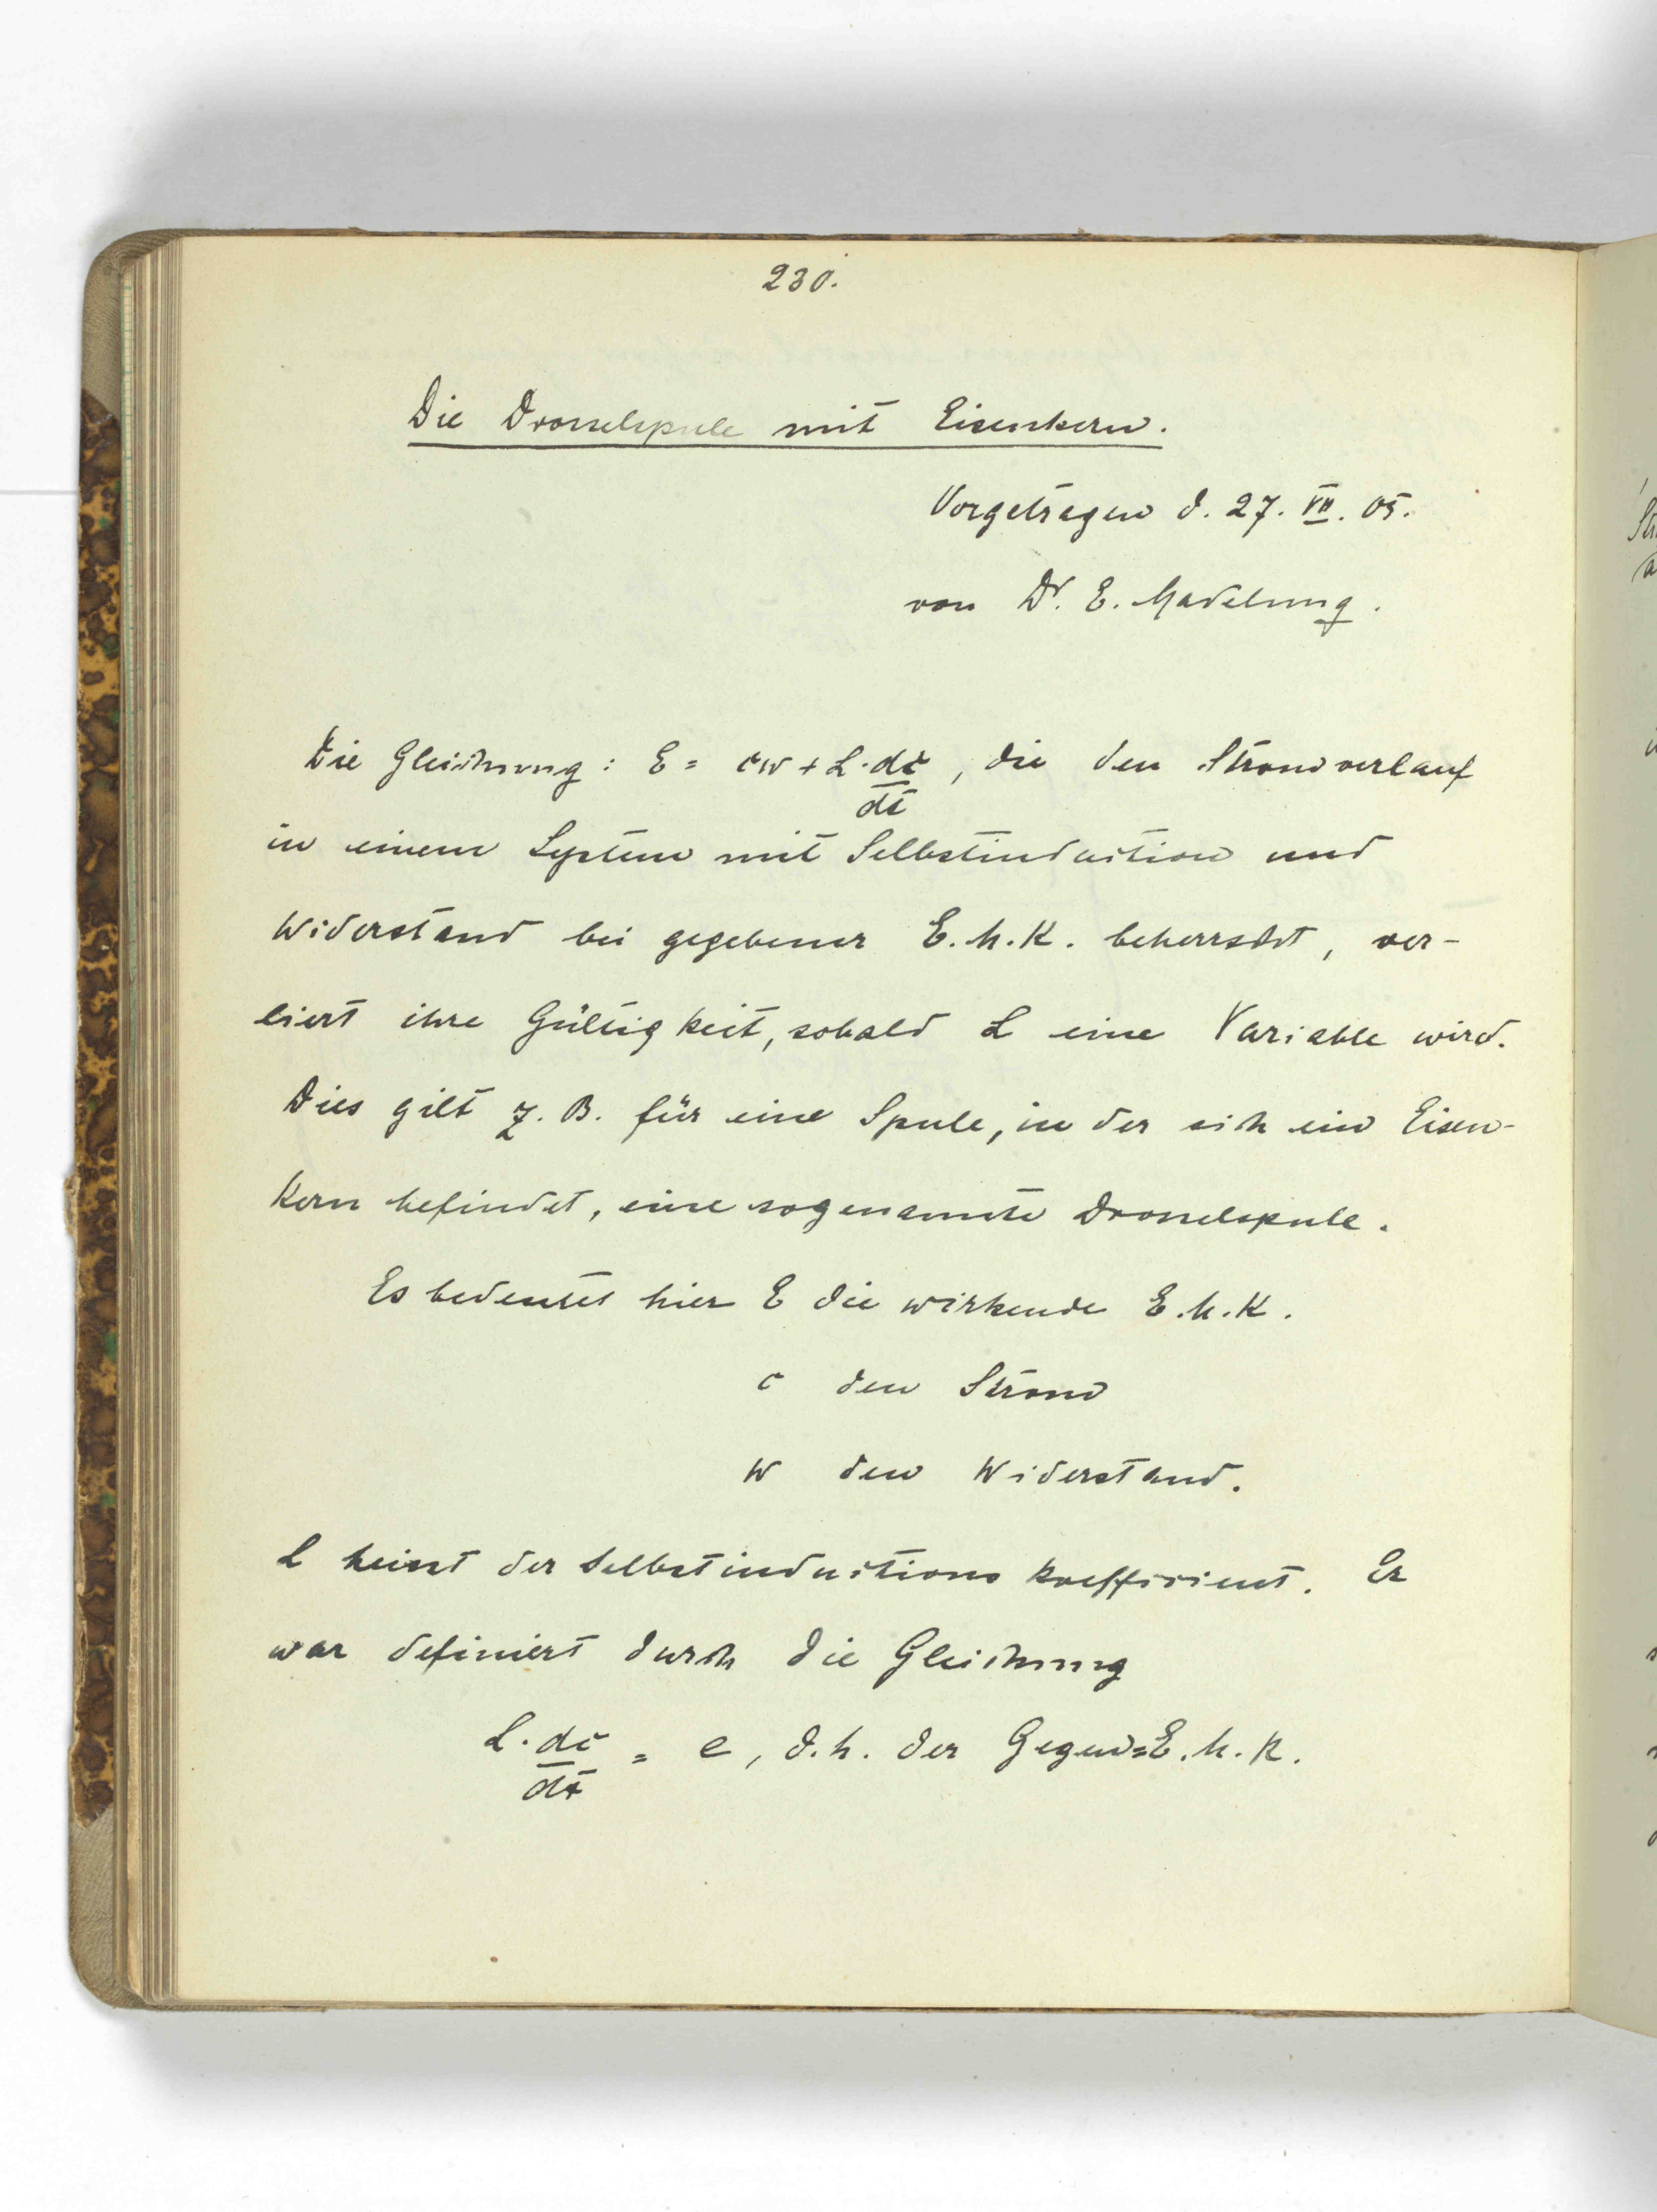 230.
Die Drosselspule mit Eisenkern.
Vorgetragen d. 27. VII. 05.
von Dr. E. Madelung.
Die Gleichung: E = iw + L·di/dt, die den Stromverlauf
in einem System mit Selbstinduction und
Widerstand bei gegebener E.M.K. beherrscht, ver-
liert ihre Gültigkeit, sobald L eine Variable wird.
Dies gilt z. B. für eine Spule, in der sich ein Eisen-
kern befindet, eine sogenannte Drosselspule.
Es bedeutet hier E die wirkende E.M.K.
i den Strom
w den Widerstand.
L heisst der Selbstinductionskoefficient. Er
war definiert durch die Gleichung
L·di/dt = e, d.h. der Gegen=E.M.K.